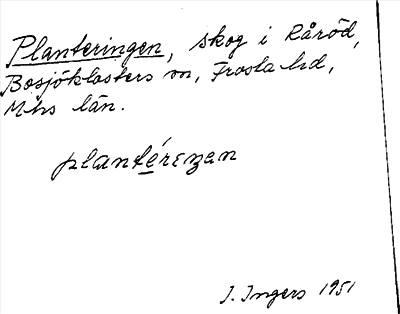 Planteringen, skog i Råröd,
Bosjöklosters sn, Frosta hd,
Mhs län.
plantérɪŋən
I. Ingers 1951